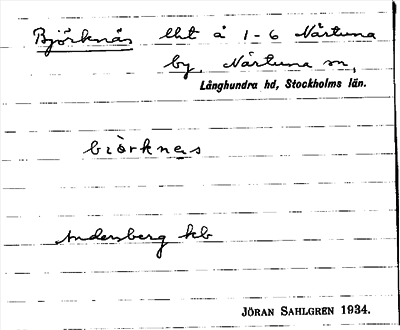 Björknäs lht å 1-6 Närtuna
by, Närtuna sn,
Långhundra hd, Stockholms län.
biörknes
Andersberg kb
JÖRAN SAHLGREN 1934.